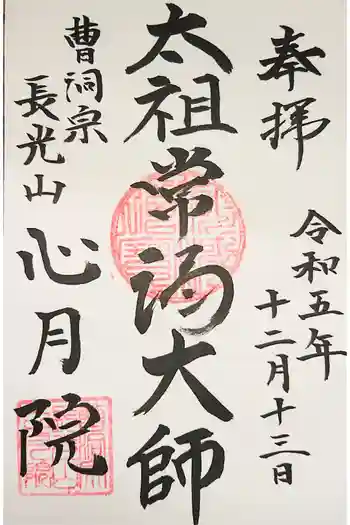 奉拝
令和五年
十二月十三日
太祖常済大師
曹洞宗
長光山
心月院